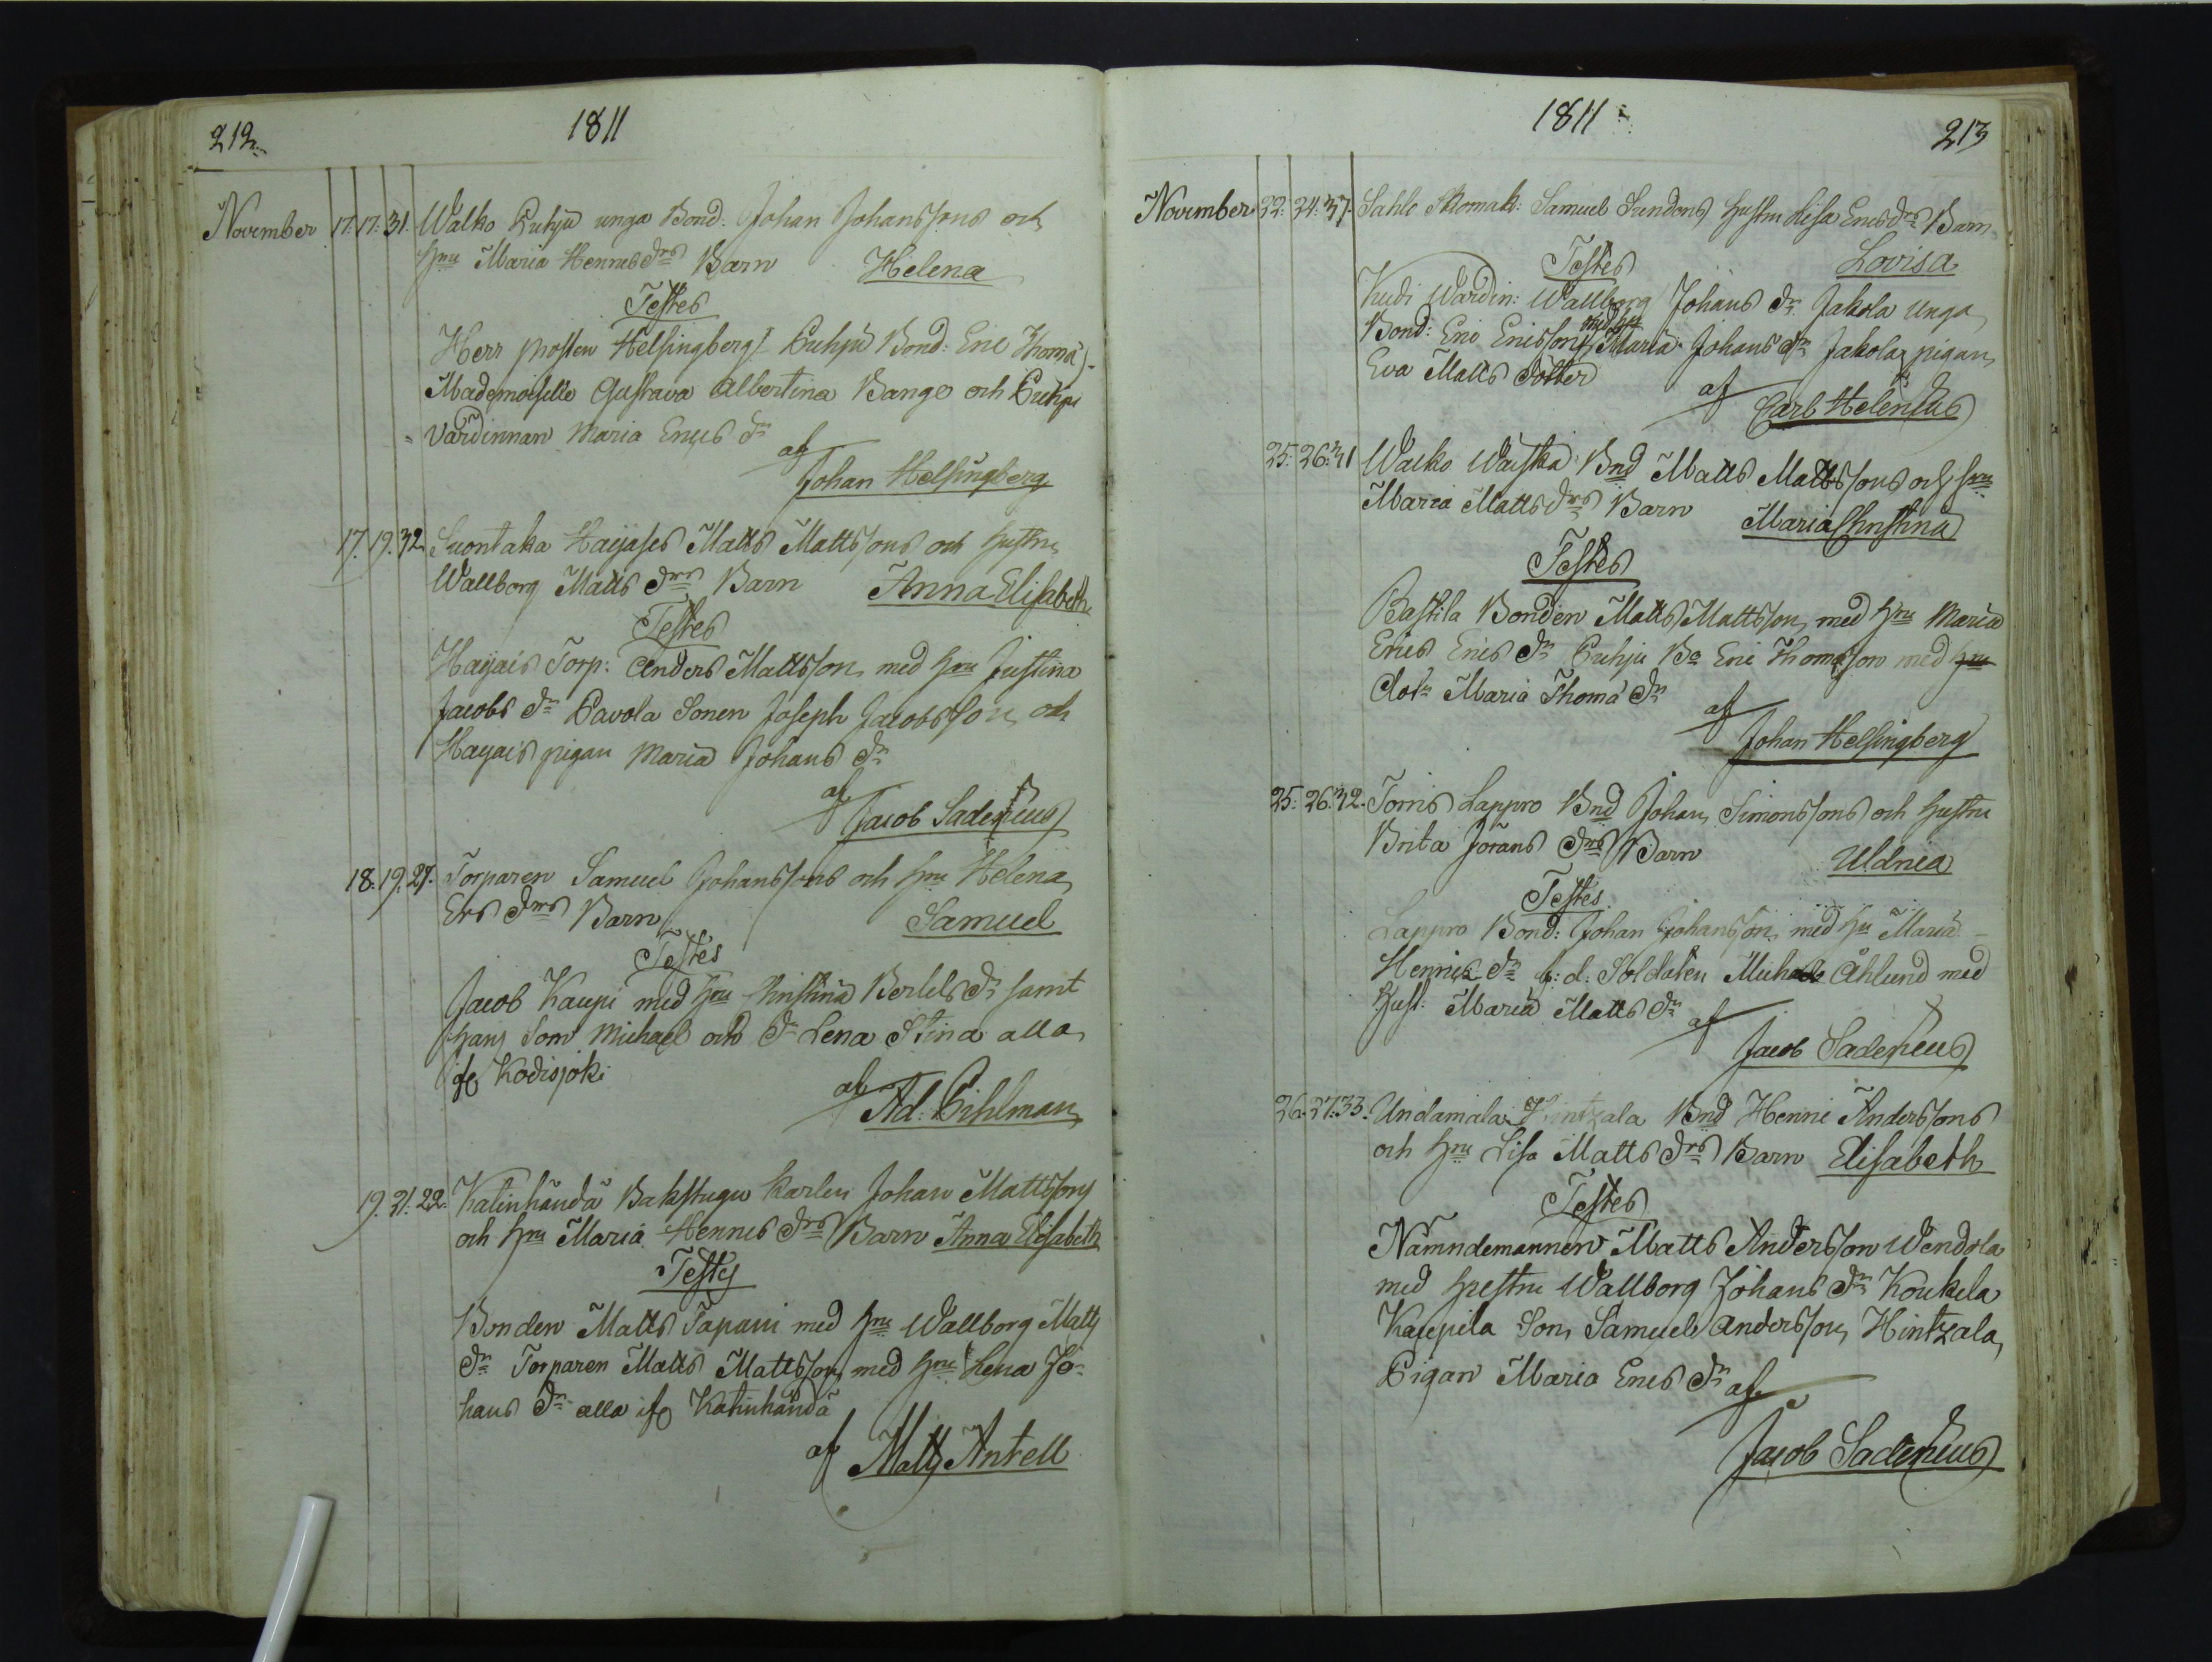 212.
1811
November 17. 17. 31. Walko Puhju unga Bond. Johan Johanssons och
hru Maria Henricsdrs Barn Helena
Testes
Herr Prosten Helsingberg, Puhju Bond: Eric Thomas-
Mademoiselle Gustava Albertina Bange och Puhju
värdinnan Maria Erics dr
af
Johan Helsingberg
17. 19. 32. Suontaka Haijases Matts Mattssons och hustru
Wallborg Matts drs Barn Anna Elisabeth
Testes
Haijais Torp: Anders Mattsson med hru Justina
Jacobs dr Pavola Sonen Joseph Jacobsson och
Haijais pigan Maria Johans dr
af
Jacob Sadenius
18. 19. 27. Torparen Samuel Johanssons och hru Helena
Ers drs Barn Samuel
Testes
Jacob Kaupi med hru Christina Bertels dr samt
hans Son Michael och dr Lena Stina alla
ifr Kodisjoki
af
Ad. Pihlman
19. 21. 22. Katinhändä Bakstugu Karlen Johan Mattssons
och hru Maria Henrics drs Barn Anna Elisabeth
Testes
Bonden Matts Tapani med hru Wallborg Matts
dr Torparen Matts Mattsson med hru Lena Jo-
hans dr alla ifr Katinhändä
af Matts Antell
1811
213
November 22. 24. 37. Sahlo Skomak: Samuel Sundons hustru Lisa Ericsdrs Barn
Testes Lovisa
Kudi Wärdin: Wallborg Johans dr Jakola Unga
Bond: Eric Ericsson med hru Maria Johans dr Jakola pigan
Eva Matts dotter
af
Carl Helenius
25. 26. 31 Walko Waiska Bnd Matts Mattssons och hru
Maria Matts drs Barn Maria Christina
Testes
Pastila Bonden Matts Mattsson med hru Maria
Erics Erics dr Puhju Bo Eric Thomasson med hru
dotr Maria Thoma dr
af
Johan Helsingberg
25. 26. 32. Torris Lappro Bnd Johan Simonssons och hustru
Brita Jörans drs Barn Uldrica
Testes
Lappro Bond: Johan Johansson med hu Maria
Henrics dr f: d: Soldaten Michael Åhlund med
hust: Maria Matts dr
af
Jacob Sadenius
26. 27. 33. Undamala Hintzala Bnd Henric Anderssons
och hru Lisa Matts drs Barn Elisabeth
Testes
Nämndemannen Matts Andersson Wendola
med hustru Wallborg Johans dr Koukela
Kaupila Son Samuel Andersson Hintzala
Pigan Maria Erics dr af
Jacob Sadenius